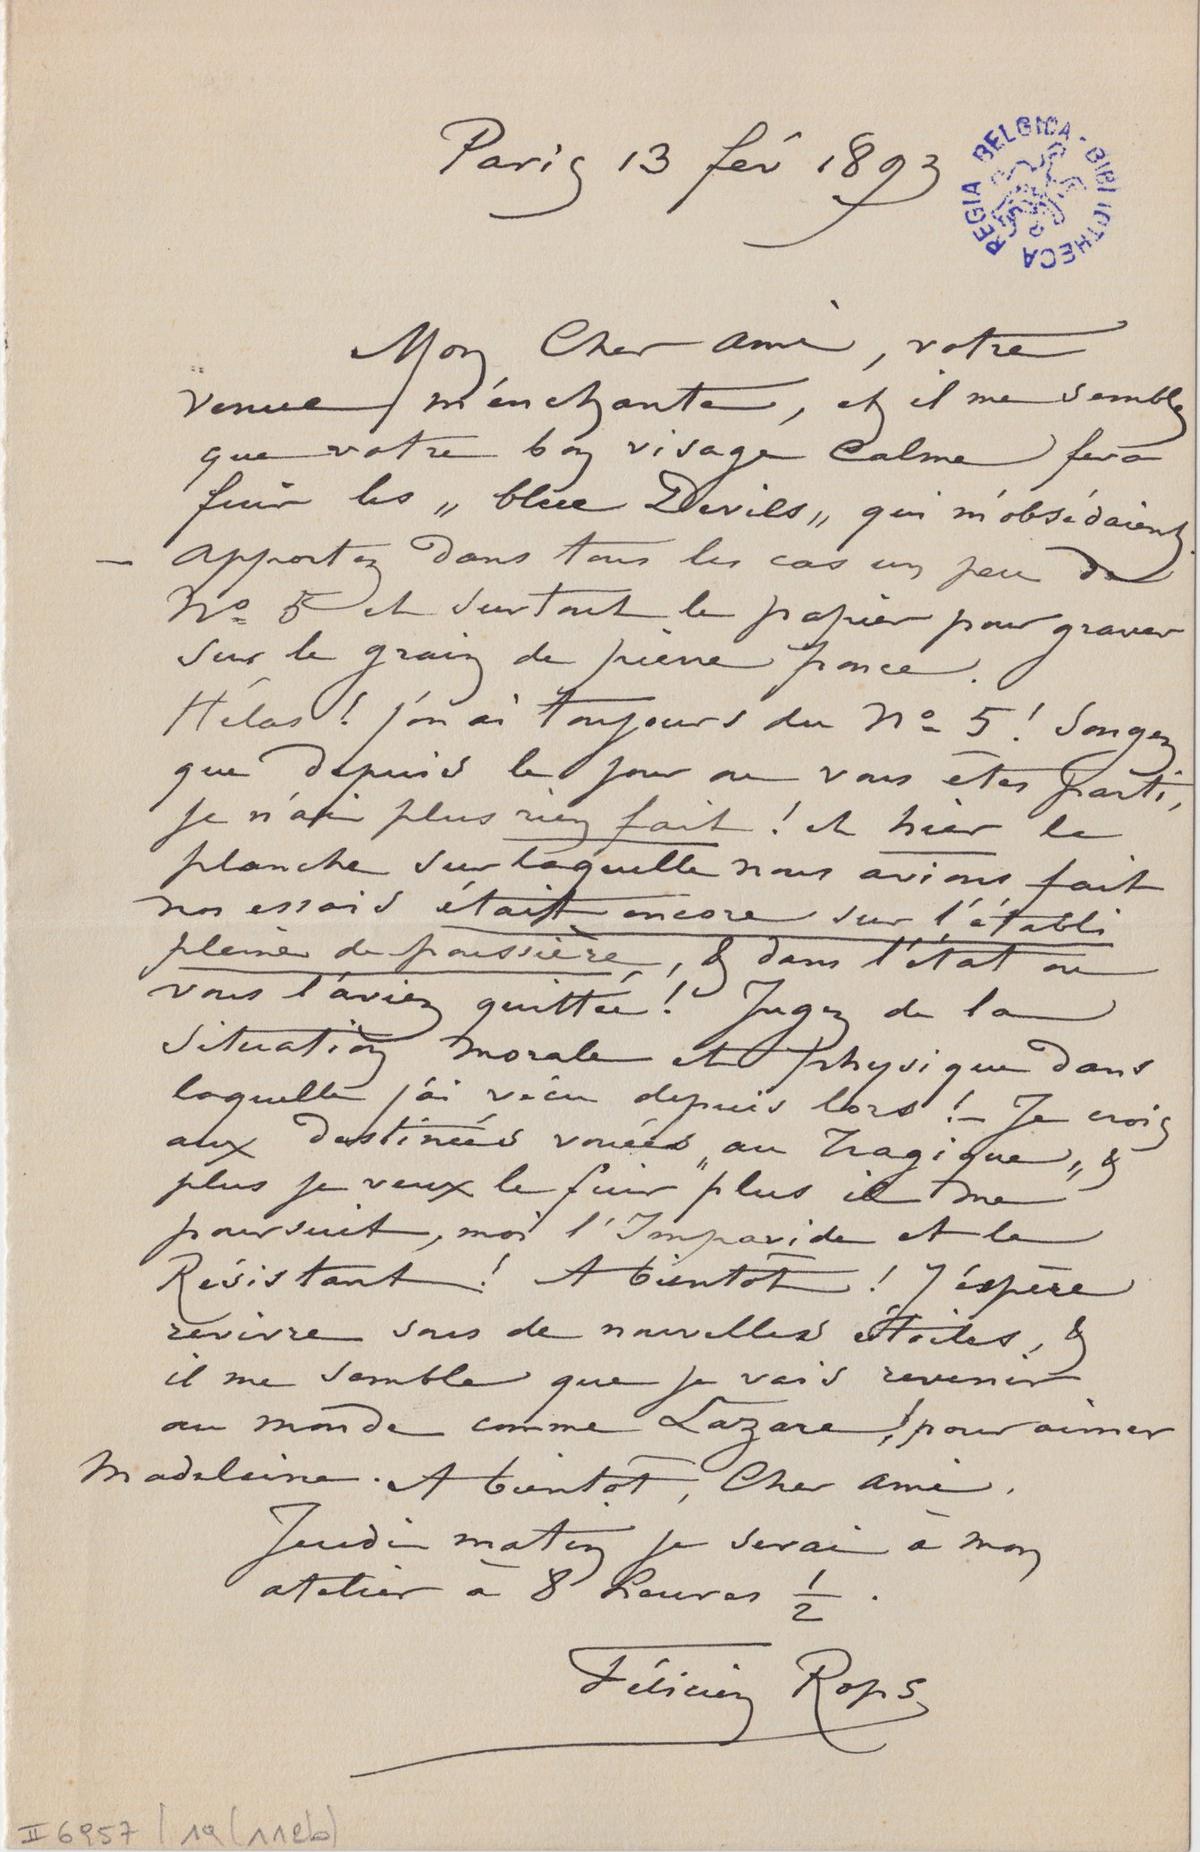 Paris 13 fév 1893
REGIA BELGICA · BIBLIOTHECA
Mon Cher ami, votre
venue m'enchante, et il me semble
que votre bon visage calme fera
fuir les „ blue Devils „ qui m'obsédaient.
— Apportez dans tous les cas un peu de
No 5 et surtout le papier pour graver
sur le grain de pierre ponce.
Hélas ! j'en ai toujours du No 5 ! Songez
que depuis le jour ou vous êtes parti,
je n'ai plus rien fait ! et hier la
planche sur laquelle nous avions fait
nos essais était encore sur l'établi
pleine de poussière, & dans l'état ou
vous l'aviez quittée ! Jugez de la
situation morale et physique dans
laquelle j'ai vécu depuis lors ! — Je crois
aux destinées vouées „ au Tragique „ &
plus je veux le fuir plus il me
poursuit, moi l'Impavide et le
Résistant ! A bientôt ! J'éspère
revivre sous de nouvelles étoiles, &
il me semble que je vais revenir
au monde comme Lazare, pour aimer
Madeleine. A bientôt, Cher ami.
Jeudi matin je serai à mon
atelier à 8 heures 1/2 .
Félicien Rops
II 6957 / 19 (112b)